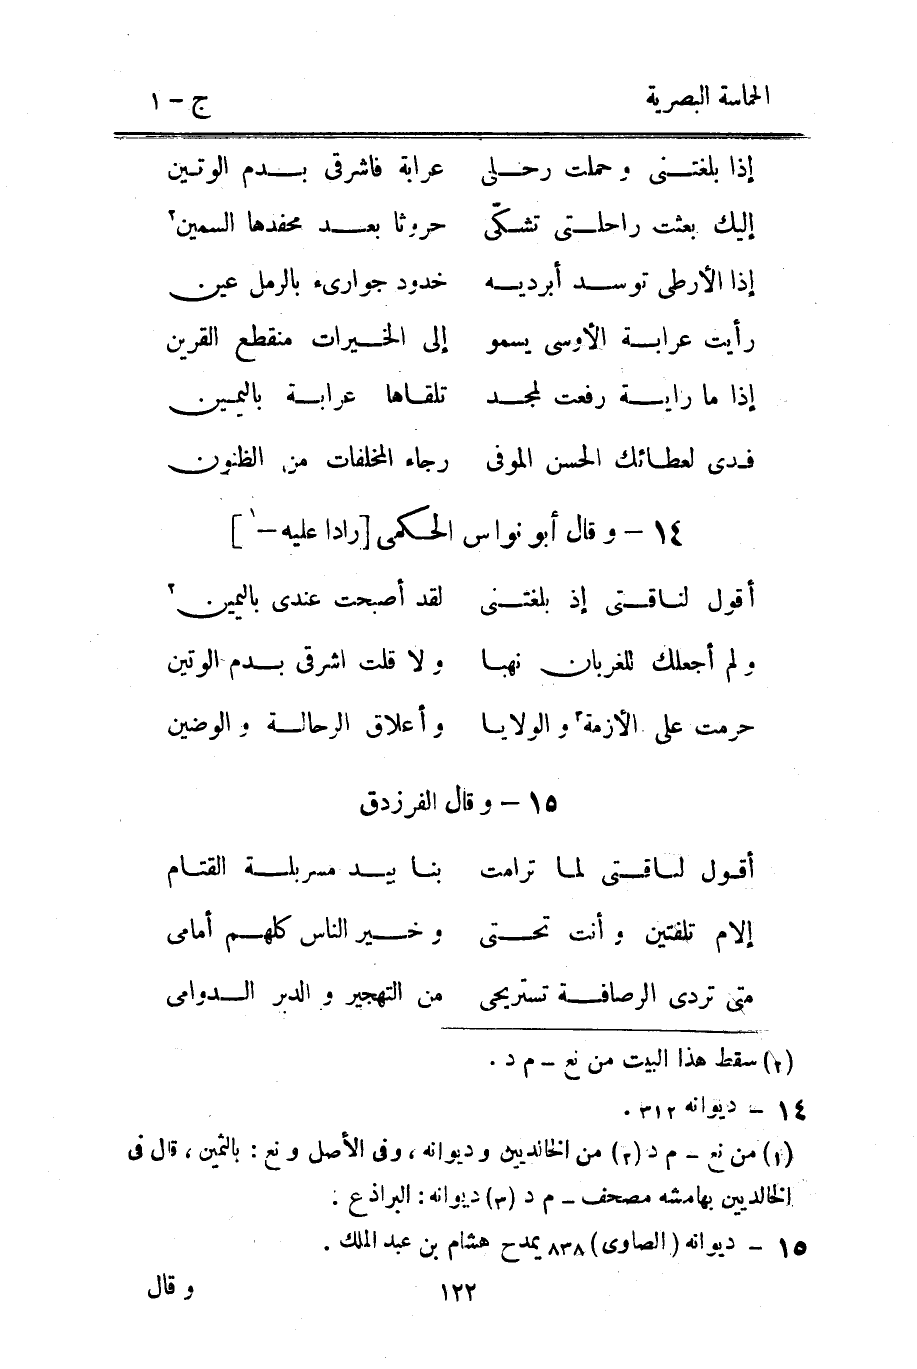 الحماسة البصرية ج – ١
إذا بلغتنى و حملت رحلى عرابة فاشرقى بدم الوتين
إليك بعثت راحلتى تشكّى حروثا بعد محفدها السمين٢
إذا الأرطى توسد أبرديه خدود جوارىء بالرمل عين
رأيت عرابة الأوسى يسمو إلى الخيرات منقطع القرين
إذا ما راية رفعت لمجد تلقاها عرابة باليمين
فدى لعطائك الحسن الموفى رجاء المخلفات من الظنون
١٤ – و قال أبو نواس الحكمى [رادا عليه –١]
أقول لناقتى إذ بلغتنى لقد أصبحت عندى باليمين٢
و لم أجعلك للغربان نهبا و لا قلت اشرقى بدم الوتين
حرمت على الأزمة٣ و الولايا و أعلاق الرحالة و الوضين
١٥ – و قال الفرزدق
أقول لناقتى لما ترامت بنا بيد مسربلة القتام
إلام تلفتين و أنت تحتى و خير الناس كلهم أمامى
متى تردى الرصافة تستريحى من التهجير و الدبر الدوامى
(٢) سقط هذا البيت من نع – م د .
١٤ – ديوانه ٣١٢ .
(١) من نع – م د (٢) من الخالديين و ديوانه ، وفى الأصل و نع : بالثمين ، قال فى
الخالديين بهامشه مصحف – م د (٣) ديوانه : البراذع .
١٥ – ديوانه (الصاوى) ٨٣٨ يمدح هشام بن عبد الملك .
١٢٢ و قال